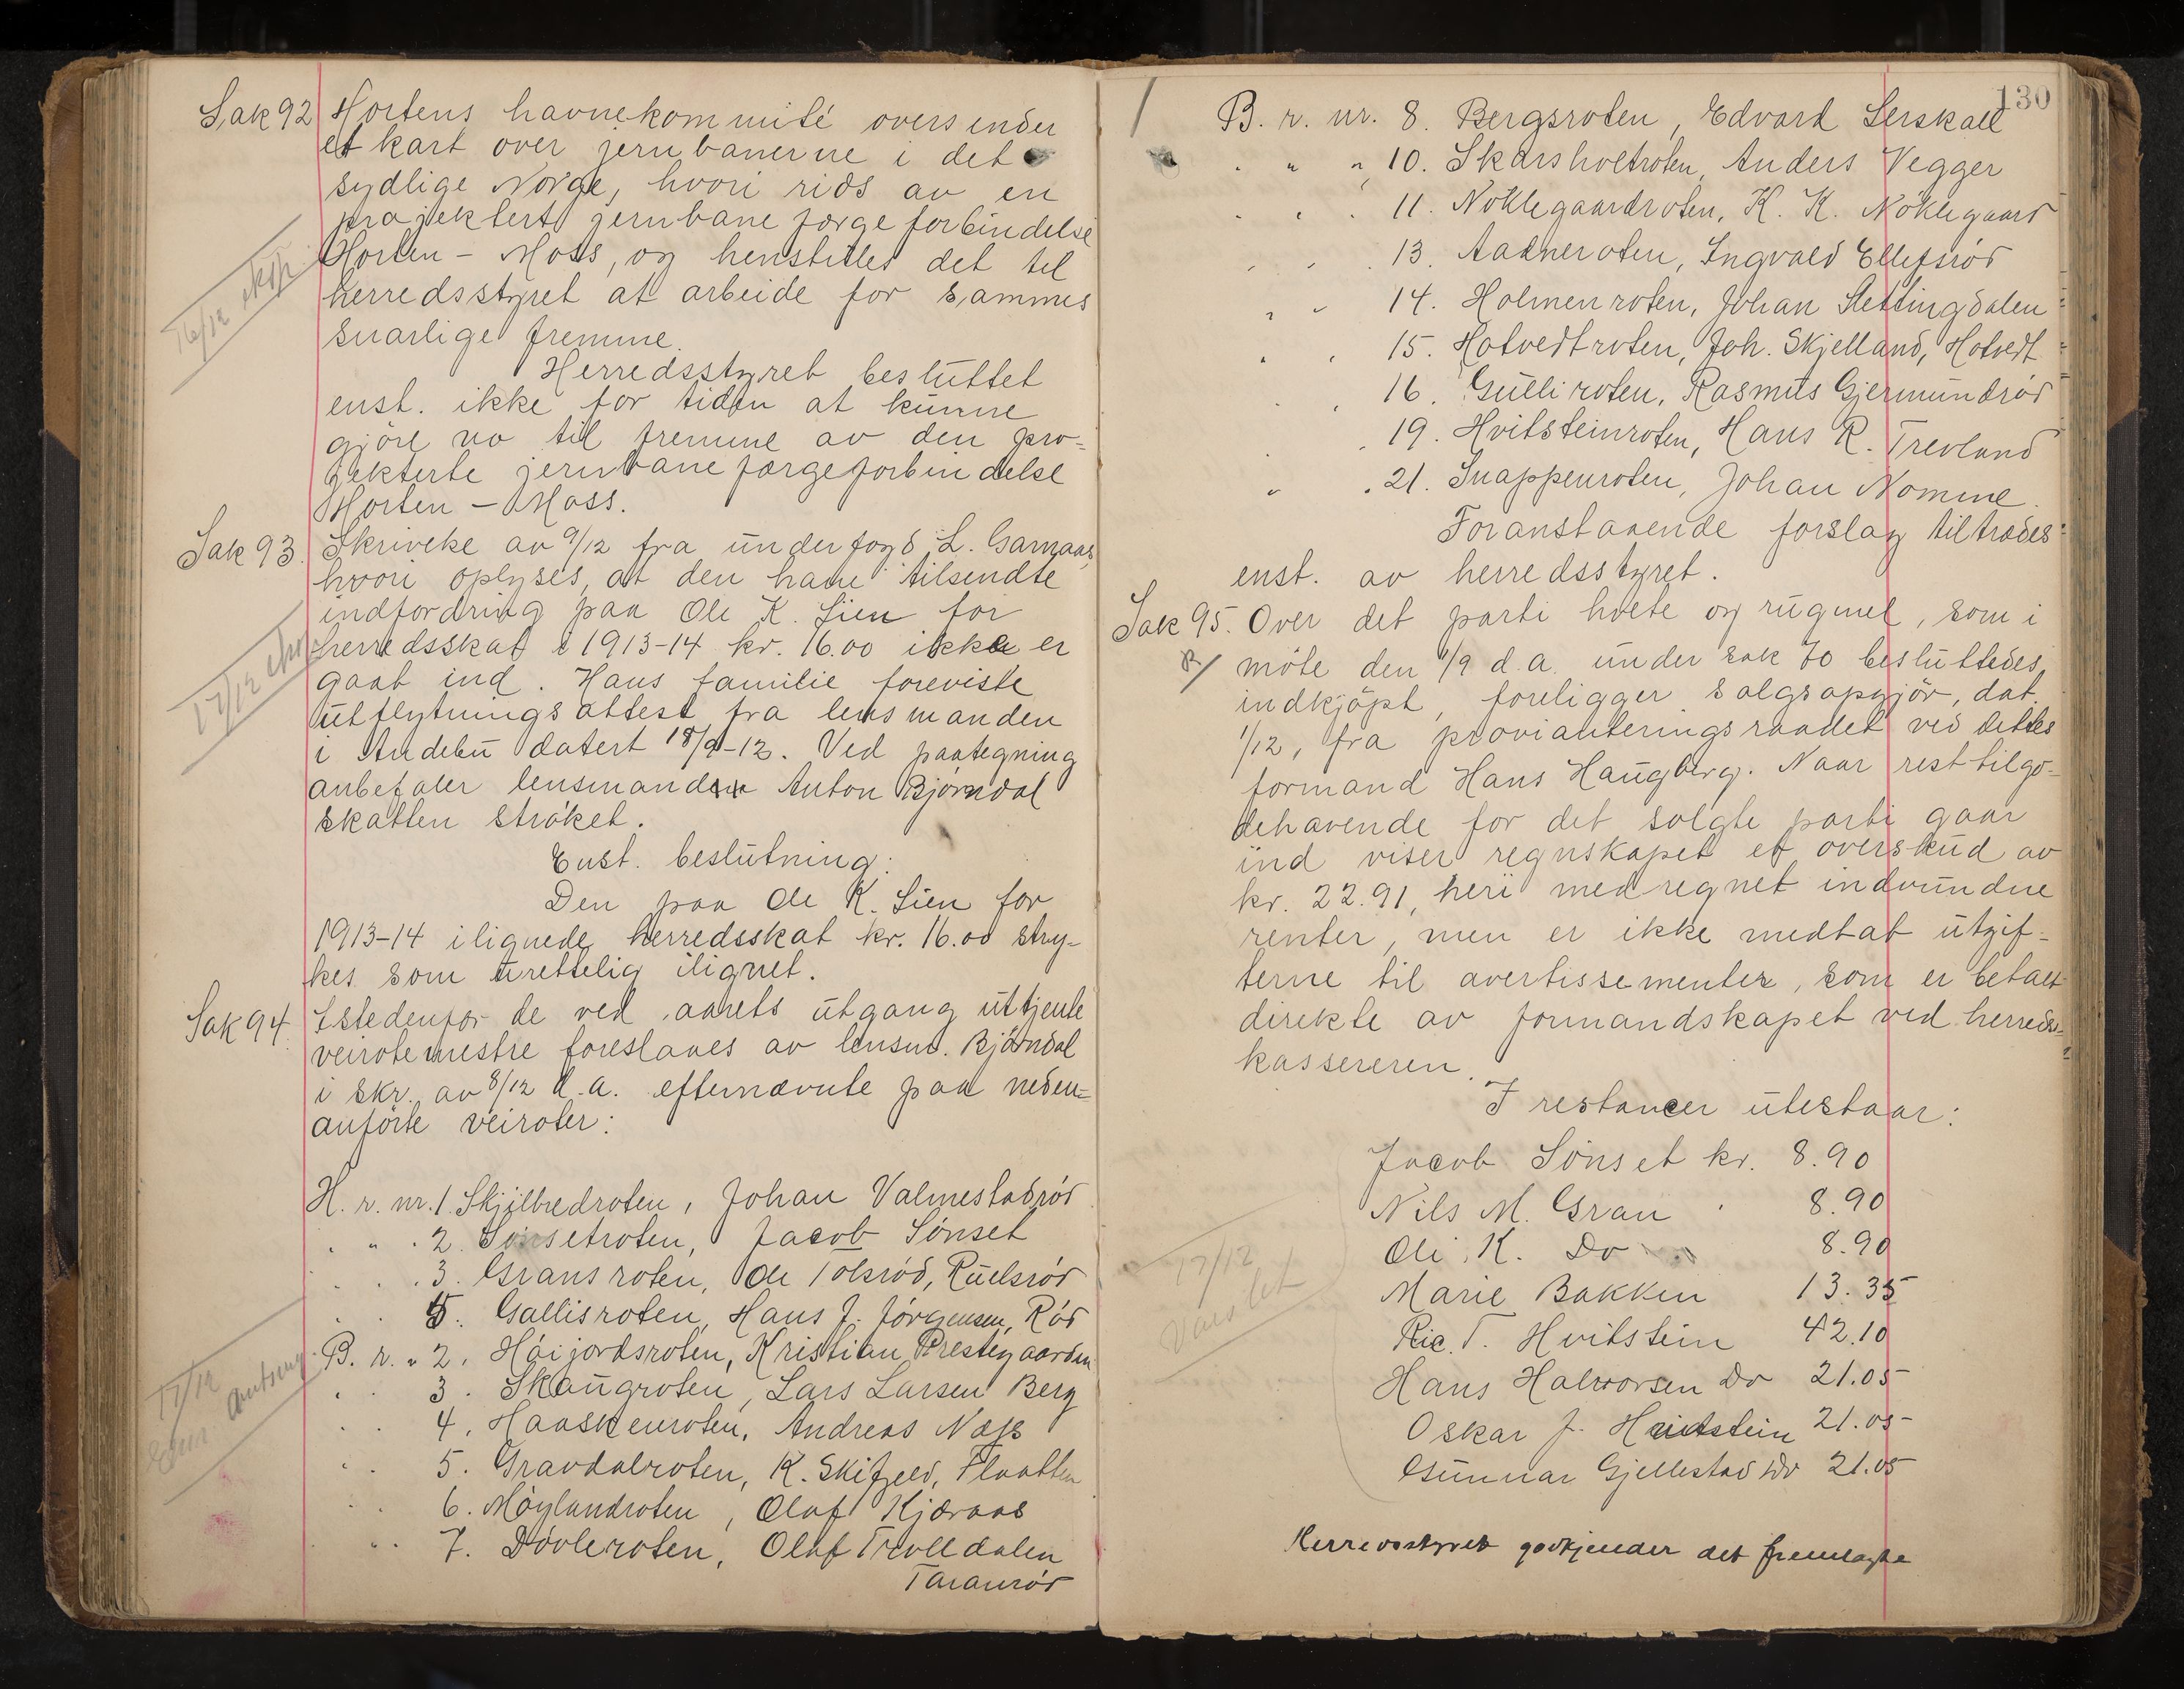 Sak 92 Hortens havnekommité oversender
et kart over jernbanerne i det
sydlige Norge, hvori rids av en
projektert jernbane færge forbindelse
Horten - Moss, og henstilles det til
herredsstyret at arbeide for sammes
snarlige fremme.
16/12 eksp.
Herredsstyret besluttet
enst. ikke for tiden at kunne
gjöre no til fremme av den pro-
jekterte jernbane færgeforbindelse
Horten - Moss.
Sak 93. Skrivelse av 9/12 fra underfogd L. Garnaas,
hvori oplyses, at den ham tilsendte
indfordring paa Ole K. Lien for
herredsskat i 1913-14 kr. 16.00 ikke er
gaat ind. Hans familie foreviste
utflytningsattest fra lensmanden
i Andebu datert 18/9-12. Ved paategning
anbefaler lensmanden Anton Bjørndal
skatten strøket.
17/12
Enst. beslutning:
Den paa Ole K. Lien for
1913-14 ilignede herredsskat kr. 16.00 stry-
kes som urettelig ilignet.
Sak 94. Istedenfor de ved aarets utgang uttjente
veirotemestre foreslaaes av lensm. Bjørndal
i skr. av 8/12 d.a. efternævnte paa neden-
anförte veiroter:
H. r. nr. 1. Skjilbredroten, Johan Valmestadrød
" " " 2. Sønsetroten, Jacob Sønset
" " " 3. Gransroten, Ole Tolsrød, Ruelsrød
" " 5. Gallisroten, Hans J. Jørgensen, Rød
B. r. " 2. Høijordsroten, Kristian Prestegaarden
" " 3. Skaugroten, Lars Larsen Berg
" " 4. Haaskenroten, Andreas Næss
" " 5. Gravdalroten, K. Skifjeld, Flaatten
" " 6. Møylandroten, Olaf Kjæraas
" " 7. Døvleroten, Olaf Trolldalen
Taranrød
17/12
130
B. r. nr. 8. Bergsroten, Edvard Lerskall
" " " 10. Skarsholtroten, Anders Vegger
" " " 11. Nøklegaardroten, K. K. Nøklegaard
" " " 13. Aadneroten, Ingvald Ellefsrød
" " 14. Holmenroten, Johan Slettingdalen
" " 15. Hotvedtroten, Joh. Skjelland, Hotvedt
" " 16. Gulliroten, Rasmus Gjermundrød
" " 19. Hvitsteinroten, Hans R. Trevland
" " 21. Snappenroten, Johan Nomme.
Foranstaaende forslag tiltrædes
enst. av herredsstyret.
Sak 95. Over det parti hvete og rugmel, som i
möte den 1/9 d.a. under sak 70 besluttedes
indkjöpt, foreligger salgsopgjör, dat.
1/12, fra provianteringsraadet ved dettes
formand Hans Haugberg. Naar resttilgo-
dehavende for det solgte parti gaar
ind viser regnskapet et overskud av
kr. 22.91, heri medregnet indvundne
renter, men er ikke medtat utgif-
terne til avertissementer, som er betalt
direkte av formandskapet ved herreds-
kassereren.
I restancer utestaar:
Jacob Sønset kr. 8.90
Nils M. Gran " 8.90
Ole K. Do 8.90
Marie Bakken 13.35
Ric. T. Hvitstein 42.10
Hans Halvorsen Do 21.05
Oskar J. Hvitstein 21.05
Gunnar Gjellestad Do 21.05
17/12
Varslet
Herredsstyret godkjender det fremlagte